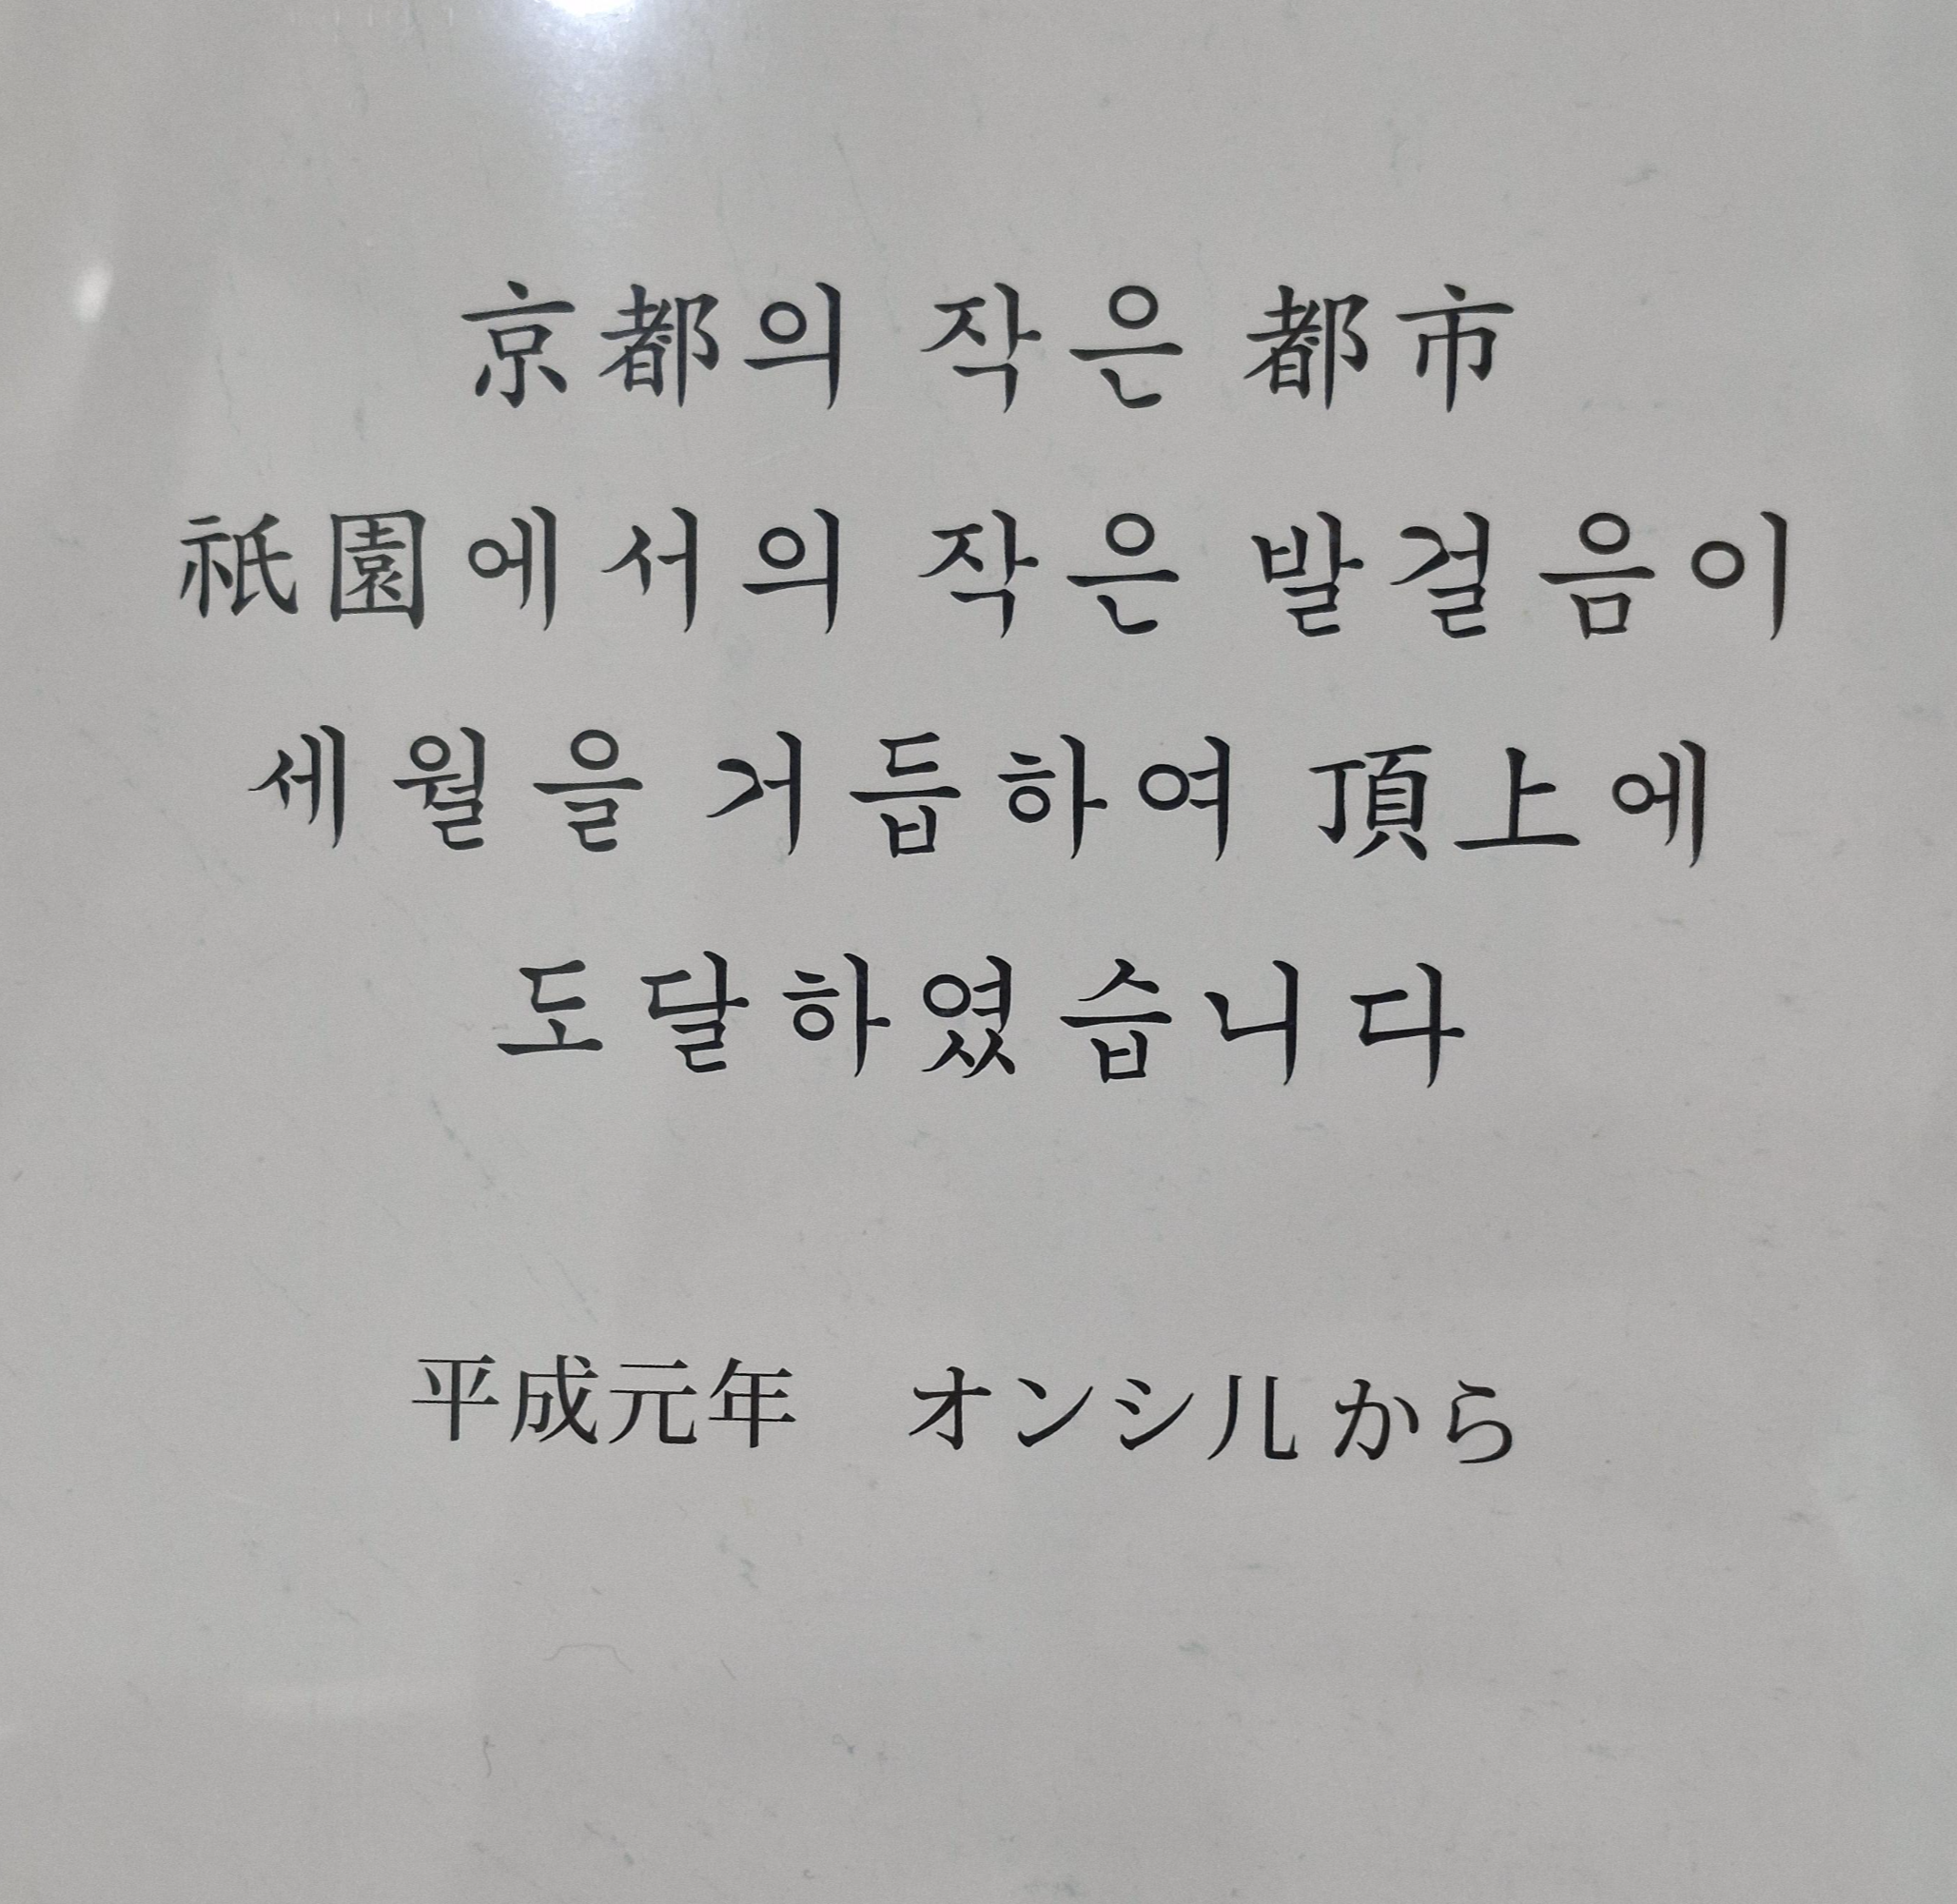 京都의 작은 都市
祇園에서의 작은 발걸음이
세월을 거듭하여 頂上에
도달하였습니다
平成元年　オンシルから